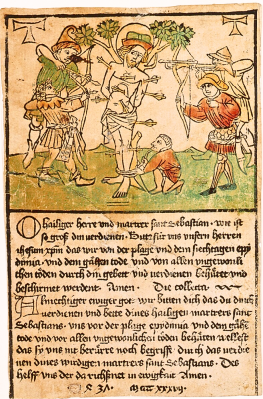 O hailiger herre und martrer sant Sebastian. wie ist
so groß din verdienen. Bitt für uns unsern herren
ihesum xpm das wir von der plage und dem siechtagen epy
dimia und dem gähen tode und von allen ungewonli
chen töden durch din gebett und verdienen behütet und
beschirmet werdent. Amen. Die collecta
Almechtiger ewiger got wir bitten dich das du durch
verdienen und bette dines hailigen martrers sant
Sebastians. uns vor der plage epydimia und dem gähen
tode und vor allen ungewonlichen töden behüten wellest
das sy uns nit berüre noch begriff durch das verdie
nen dines wirdigen martrers sant Sebastians. Des
helff uns der da richsnet in ewigkait Amen.